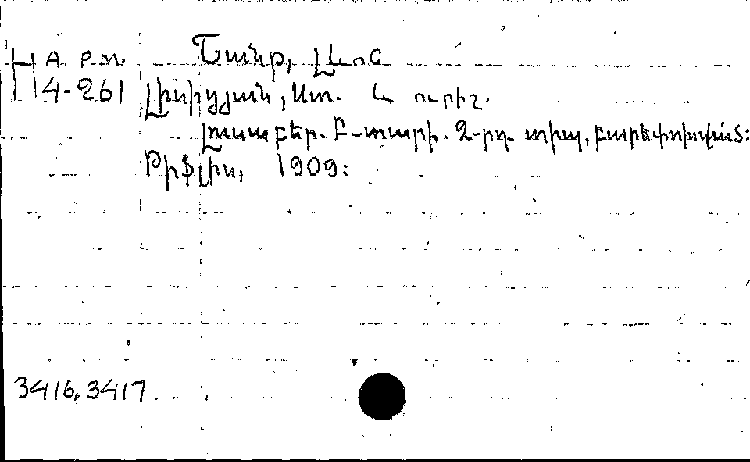 Շանթ, Լևոն
4-261
Լիսիցյան, Ստ. և ուրիշ.
Լուսաբեր. Բ-տարի. 2-րդ. տիպ, բարեփոխված:
Թիֆլիս, 1909:
3416, 3417